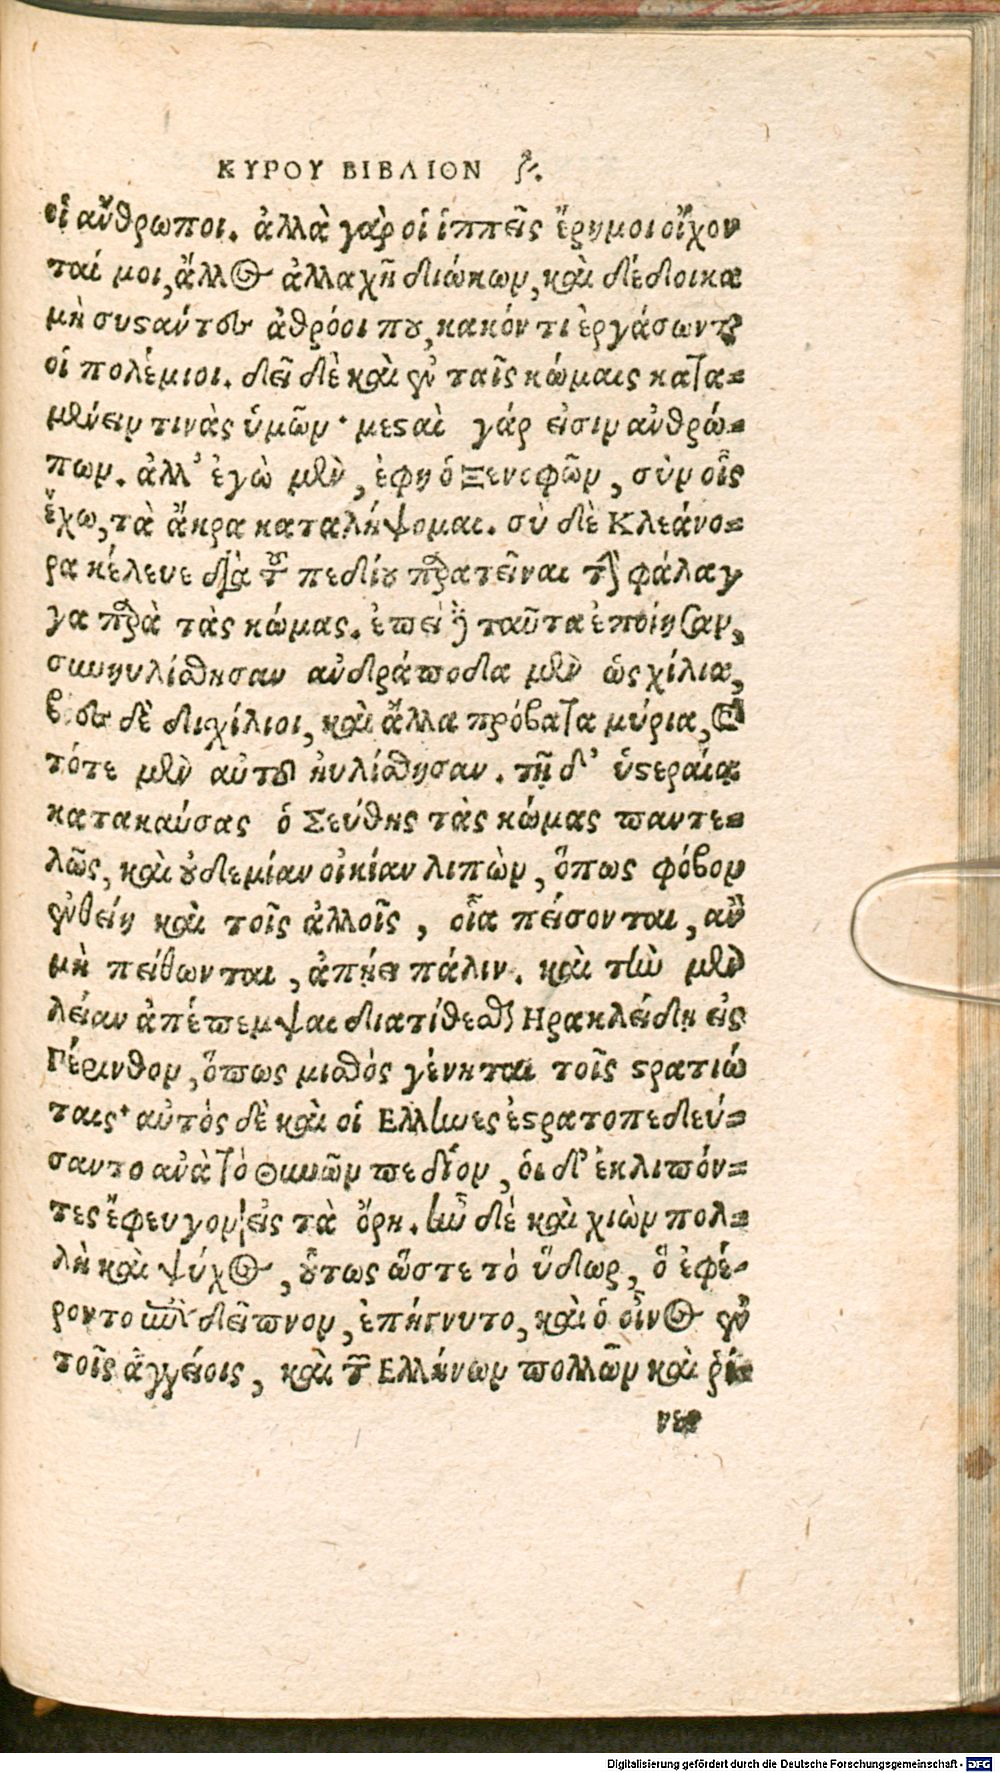 ΚΥΡΟΥ ΒΙΒΛΙΟΝ ζ.
οἱ ἄνθρωποι. ἀλλὰ γὰρ οἱ ἱππεῖς ἔρημοι οἴχον
ταί μοι, ἄλλος ἀλλαχῆ διώκων, καὶ δέδοικα
μὴ συςάντες ἀθρόοι που, κακόν τι ἐργάσωνται
οἱ πολέμιοι. δεῖ δὲ καὶ ἐν ταῖς κώμαις κατα=
μένειν τινὰς ὑμῶν· μεςαὶ γάρ εἰσιν ἀνθρώ=
πων. ἀλλ' ἐγὼ μὲν, ἔφη ὁ Ξενοφῶν, σὺν οἷς
ἔχω, τὰ ἄκρα καταλήψομαι. σὺ δὲ Κλεάνο=
ρα κέλευε διὰ τοῦ πεδίου παρατεῖναι τὴν φάλαγ
γα παρὰ τὰς κώμας. ἐπεὶ δὲ ταῦτα ἐποίησαν,
συνηυλίσθησαν ἀνδράποδα μὲν ὡς χίλια,
βόες δὲ δισχίλιοι, καὶ ἄλλα πρόβατα μύρια, καὶ
τότε μὲν αὐτοῦ ηὐλίσθησαν. τῇ δ' ὑςεραίᾳ
κατακαύσας ὁ Σεύθης τὰς κώμας παντε=
λῶς, καὶ οὐδεμίαν οἰκίαν λιπὼν, ὅπως φόβον
ἐνθείη καὶ τοῖς ἀλλοῖς, οἷα πείσονται, ἂν
μὴ πείθωνται, ἀπῄει πάλιν. καὶ τὴν μὲν
λείαν ἀπέπεμψαι διατίθεσθαι Ηρακλείδῃ εἰς
Γέρινθον, ὅπως μισθὸς γένηται τοῖς ςρατιώ
ταις· αὐτὸς δὲ καὶ οἱ Ελληνες ἐςρατοπεδεύ=
σαντο ἀνὰ τὸ Θυνῶν πεδίον, οἱ δ' ἐκλιπόν=
τες ἔφευγον εἰς τὰ ὄρη. ἦν δὲ καὶ χιὼν πολ=
λὴ καὶ ψύχος, οὕτως ὥστε τὸ ὕδωρ, ὃ ἐφέ=
ροντο ἐπὶ δεῖπνον, ἐπήγνυτο, καὶ ὁ οἶνος ἐν
τοῖς ἀγγείοις, καὶ τῶν Ελλήνων πολλῶν καὶ ῥῖ=
νες
Digitalisierung gefördert durch die Deutsche Forschungsgemeinschaft - DFG